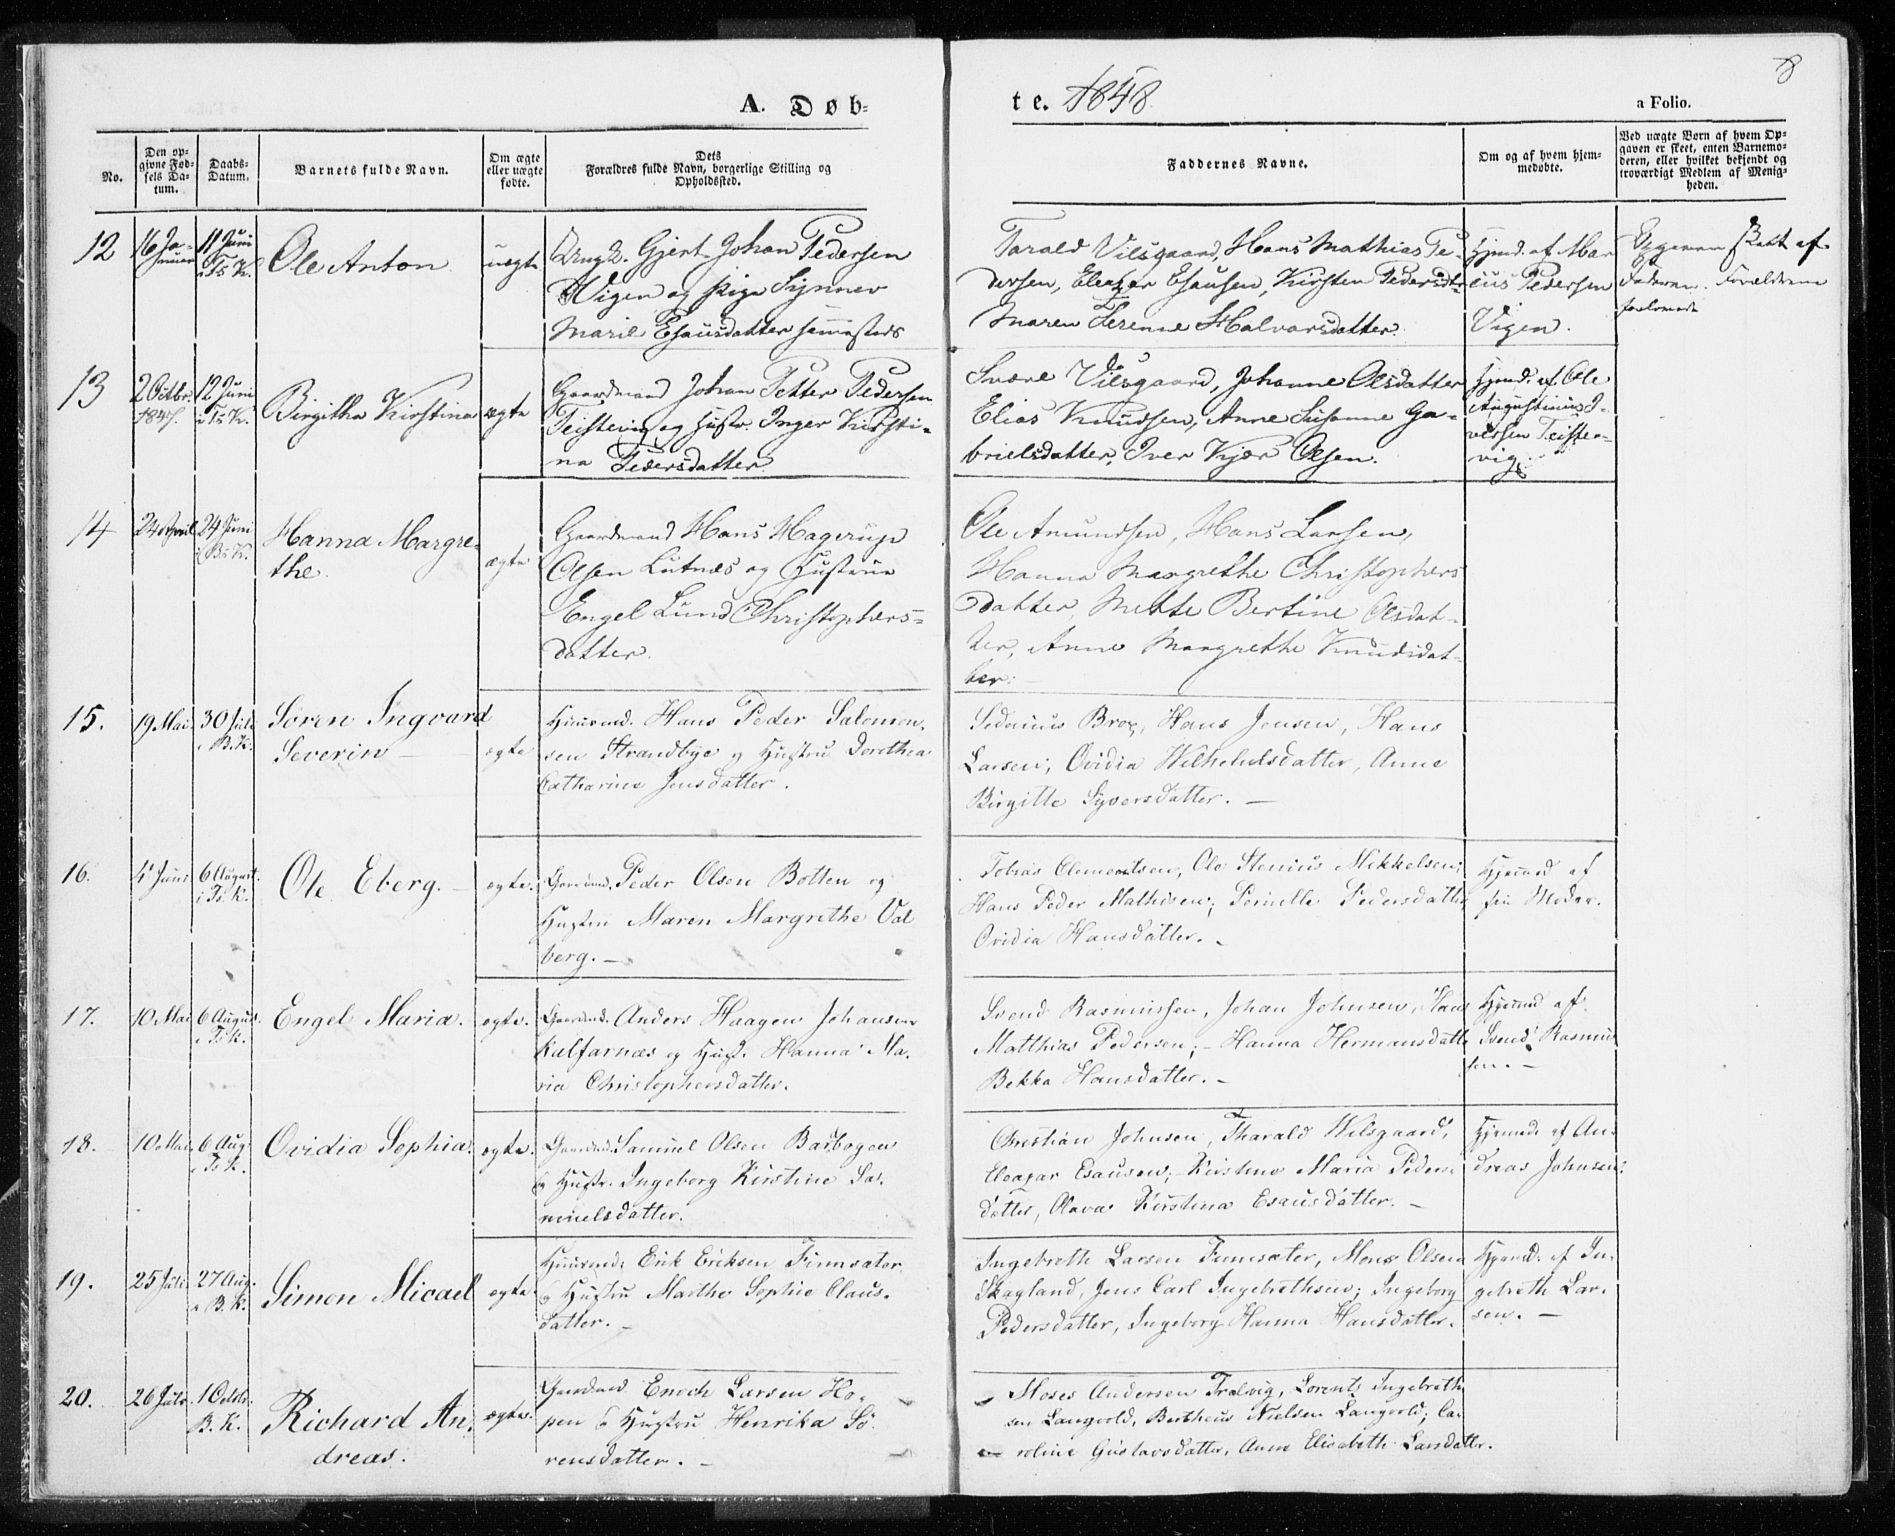 8
A. Døb-
te. 1848.
a Folio.
No.
Den op-
givne Fød-
sels Da-
tum.
Daabs-
Datum.
Barnets fulde Navn.
Om ægte
eller uægte
fødte.
Dets
Forældres fulde Navn, borgerlige Stilling og
Opholdssted.
Faddernes Navne.
Om og af hvem hjem-
medøbte.
Ved uægte Børn af hvem Op-
gaven er skeet, enten Barnemo-
deren, eller hvilket bekjendt og
troværdigt Medlem af Menig-
heden.
12
16 Ja-
nuar
11 Juni
i Ts K.
Ole Anton
uægte
Ungk. Gjert Johan Pedersen
Wigen og Pige Synnev
Marie Esausdatter sammesteds
Tarald Vilsgaard, Hans Mathias Pe-
dersen, Eleazar Esausen, Kirsten Pedersdtr
Maren Serenne Halvorsdatter.
Hjemd. af Mar
cus Pedersen
Vigen.
Opgaven skeet af
Faderen. Forældrene
forlovede
13
2 Octbr.
1847.
12 Juni
i Ts K.
Birgitha Kirstina
ægte
Gaardmand Johan Petter Pedersen
Teistevig og Hustr. Inger Kirsti-
na Pedersdatter
Svære Vilsgaard, Johanne Olsdatter
Elias Knudsen, Anne Susanne Ga-
brielsdatter, Iver Kjær Olsen.
Hjemd. af Ole
Augustinus I-
versen Teiste-
vig.
14
24 April
24 Juni
i Bs K.
Hanna Margre-
the.
ægte
Gaardmand Hans Hagerup
Olsen Lutnæs og Hustrue
Engel Lund Christophers-
datter.
Ole Amundsen, Hans Larsen,
Hanna Margrethe Christophers
datter, Mette Bertine Olsdat-
ter, Anne Margrethe Knudsdat-
ter.
15.
19 Mai
30 Juli
i B. K.
Søren Ingvard
Severin
ægte
Huusmd. Hans Peder Salomon-
sen Strandbye og Hustru Dorothea
Catharina Jensdatter.
Sedenius Brox, Hans Jensen, Hans
Larsen, Ovidia Wilhelmsdatter, Anne
Birgitte Syversdatter. —
16.
4 Juni
6 August.
i Ts. K.
Ole Eberg. —
ægte.
Gaardmd. Peder Olsen Botten og
Hustru Maren Margrethe Val
berg. —
Tobias Clementsen, Ole Stenius Mikkelsen;
Hans Peder Mathisen; Pernille Pedersdatter
Ovidia Hansdatter. -
Hjemmd af
sin Moder.
17.
10 Mai
6 August.
i Ts K.
Engel Maria.
ægte.
Gaardmd. Anders Haagen Johansen
Kalfarnæs og Hustr. Hanna Ma-
ria Christophersdatter.
Svend Rasmussen, Johan Johnsen, Hans
Matthias Pedersen; - Hanna Hermansdatt
Bekka Hansdatter. -
Hjemmd af
Svend Rasmus
sen. -
18.
10 Mai
6 Aug.
i Ts K.
Ovidia Sophia.
ægte.
Gaardmd. Samuel Olsen Barbogen
og Hustr. Ingeborg Kirstine Sa-
muelsdatter.
Christian Johnsen, Tharald Wilsgaard,
Eleazar Esausen; - Kirstine Maria Peders-
datter, Olava Kirstina Esausdatter. -
Hjemmd. af An-
dreas Johnsen.
19.
25 Juli
27 Aug.
i B. K.
Simon Micael
ægte.
Huusmd. Erik Eriksen Finnsæter
og Hustru Marthe Sophie Claus-
datter. -
Ingebreth Larsen Finnsæter, Mons Olsen
Skagland, Jens Carl Ingebrethsen; Ingeborg
Pedersdatter, Ingeborg Hanna Hansdatter.
Hjemmd. af In-
gebreth Lar-
sen. —
20.
26 Juli
1 Octbr.
B. K.
Richard An-
dreas.
ægte.
Gaardmd. Enoch Larsen Ho-
pen og Hustru Henrika Sø-
rensdatter. -
Moses Andersen Trælvig, Lorents Ingebreth
sen Langvold, Bertheus Nielsen Langvold; Ca-
roline Gustavsdatter, Anne Elisabeth Larsdatter.